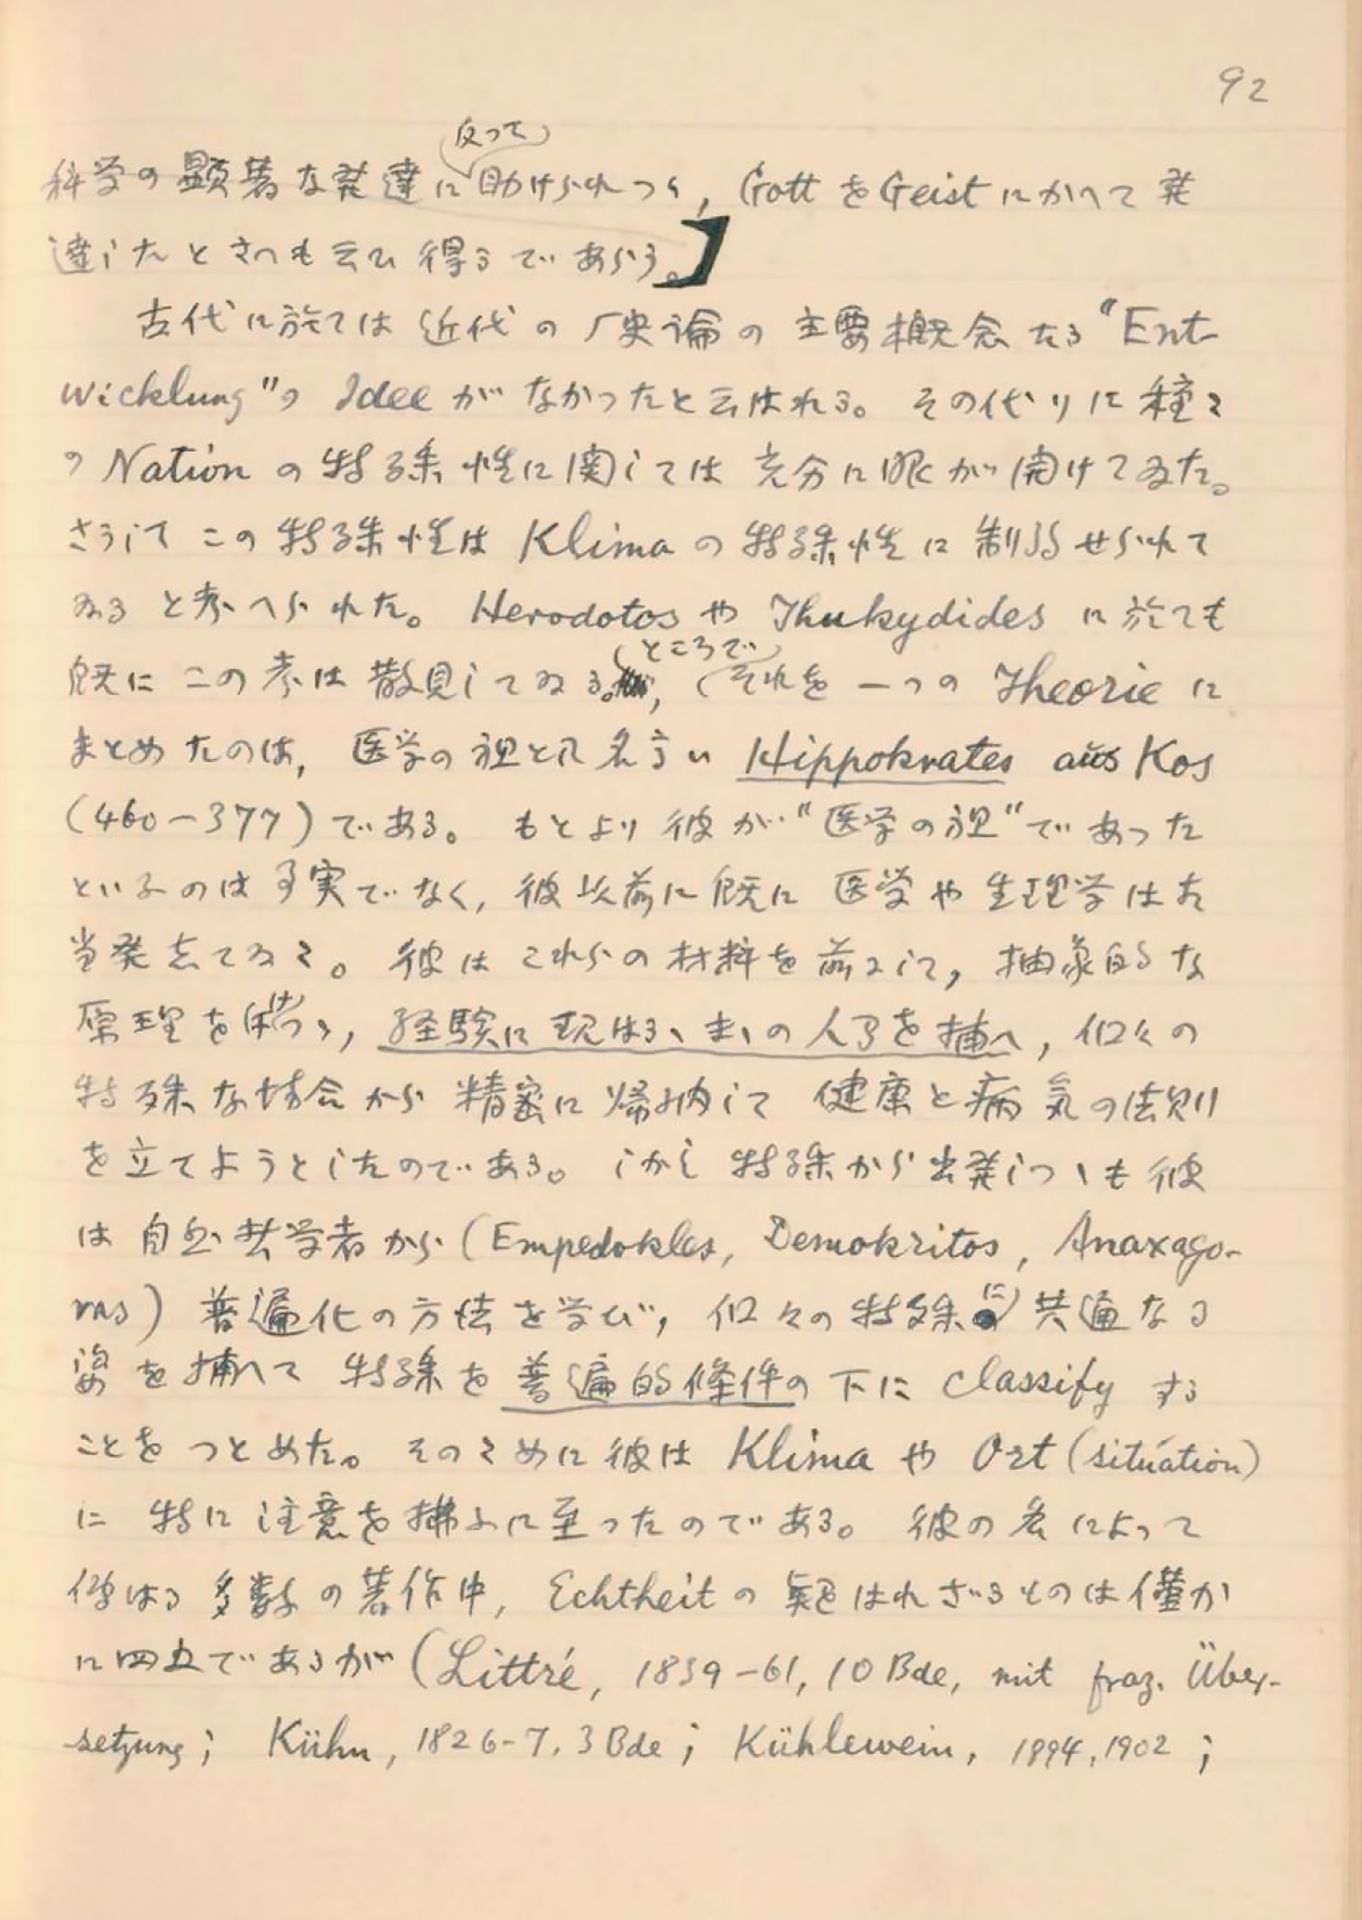 92
科学の顕著な発達に反って助けられつゝ, GottをGeistにかへて発
達したとさへも云ひ得るであらう。]
古代に於ては近代の歴史論の主要概念たる"Ent-
wicklung"の Idee がなかったと云はれる。その代りに種々
の Nation の特殊性に関しては充分に眼が開けてゐた。
さうしてこの特殊性は Klima の特殊性に制約せられて
ゐると考へられた。Herodotos や Thukydides に於ても
既にこの考は散見してゐる。ところで, それを一つの Theorie に
まとめたのは, 医学の祖として名高い Hippokrates aus Kos
(460-377)である。もとより彼が"医学の祖"であった
といふのは事実でなく, 彼以前に既に医学や生理学は相
当発达してゐた。彼はこれらの材料を前にして, 抽象的な
原理を保つゝ, 経験に現はるゝまゝの人間を捕へ, 個々の
特殊な場合から精密に帰納して健康と病気の法則
を立てようとしたのである。しかし特殊から出発しつゝも彼
は自然哲学者から(Empedokles, Demokritos, Anaxago-
ras) 普遍化の方法を学び, 個々の特殊に共通なる
姿を捕へて特殊を普遍的條件の下に classify する
ことをつとめた。そのために彼は Klima や Ort (situation)
に特に注意を拂ふに至ったのである。彼の名によって
伝はる多数の著作中, Echtheit の疑はれざるものは僅か
に四五であるが (Littré, 1839-61, 10 Bde, mit fraz. Über-
setzung; Kühn, 1826-7. 3 Bde; Kühlewein, 1894, 1902;